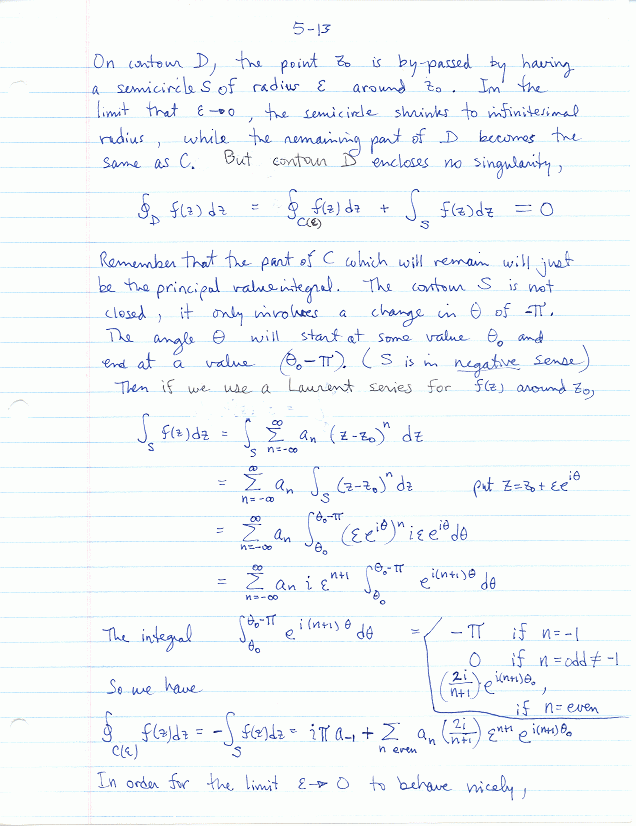 5-13
On contour D, the point z₀ is by-passed by having
a semicircle S of radius ε around z₀. In the
limit that ε→0, the semicircle shrinks to infinitesimal
radius, while the remaining part of D becomes the
same as C. But contour D encloses no singularity,
∮_D f(z)dz = ∮_{C(ε)} f(z)dz + ∫_S f(z)dz = 0
Remember that the part of C which will remain will just
be the principal value integral. The contour S is not
closed, it only involves a change in θ of -π.
The angle θ will start at some value θ₀ and
end at a value (θ₀-π). (S is in negative sense)
Then if we use a Laurent series for f(z) around z₀,
∫_S f(z)dz = ∫_S Σ_{n=-∞}^{∞} aₙ (z-z₀)ⁿ dz
= Σ_{n=-∞}^{∞} aₙ ∫_S (z-z₀)ⁿ dz put z=z₀+εe^{iθ}
= Σ_{n=-∞}^{∞} aₙ ∫_{θ₀}^{θ₀-π} (εe^{iθ})ⁿ iεe^{iθ} dθ
= Σ_{n=-∞}^{∞} aₙ i ε^{n+1} ∫_{θ₀}^{θ₀-π} e^{i(n+1)θ} dθ
The integral ∫_{θ₀}^{θ₀-π} e^{i(n+1)θ} dθ = { -π if n=-1
0 if n=odd≠-1
(2i/(n+1)) e^{i(n+1)θ₀},
if n=even
So we have
∮_{C(ε)} f(z)dz = -∫_S f(z)dz = iπa₋₁ + Σ_{n even} aₙ (2i/(n+1)) ε^{n+1} e^{i(n+1)θ₀}
In order for the limit ε→0 to behave nicely,